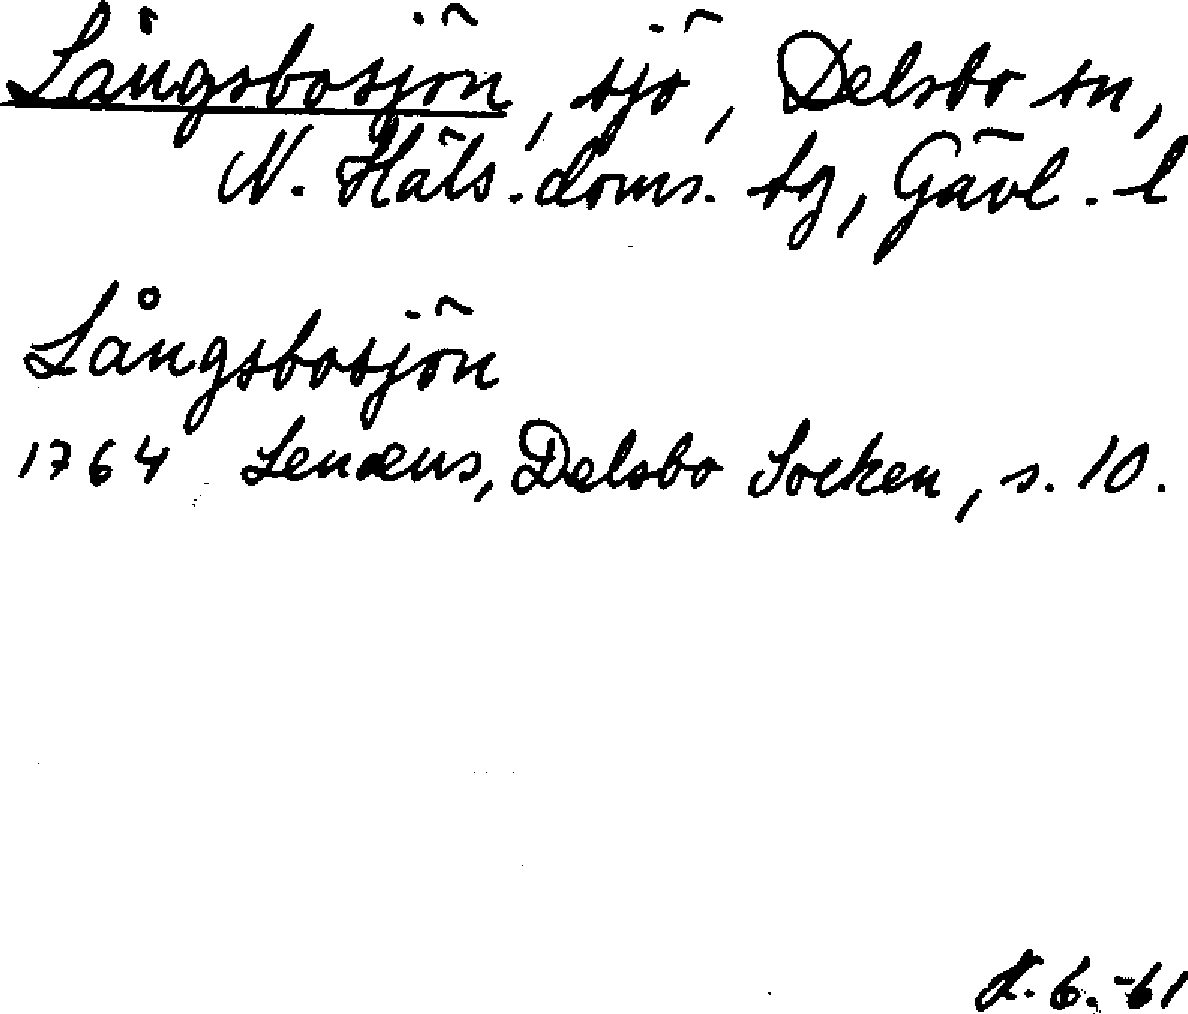 Långsbosjön, sjö, Delsbo sn,
N. Häls. doms. tg, Gävl. l
Långsbosjön
1764 Lenæus, Delsbo Socken, s. 10.
6.-61